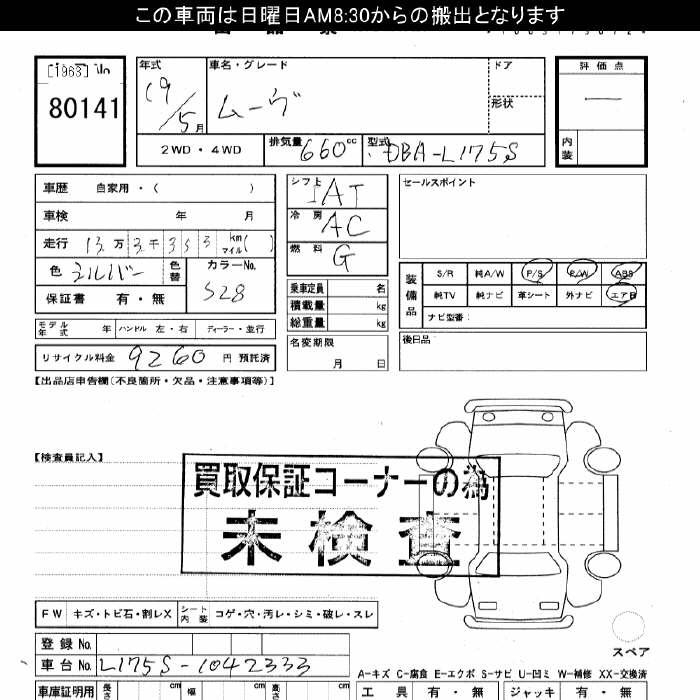 この車両は日曜日AM8:30からの搬出となります
[1963]
80141
年式
19/5月
車名・グレード
ムーヴ
ドア
形状
評価点
—
内装
2WD・4WD
排気量 660cc
型式 DBA-L175S
車歴 自家用・( )
車検 年 月
走行 13万3千353km マイル( )
色 シルバー 色替
カラーNo. S28
保証書 有・無
モデル年式 年 ハンドル 左・右 ディーラー・並行
リサイクル料金 9260円 預託済
シフト IAT
冷房 AC
燃料 G
乗車定員 名
積載量 kg
総重量 kg
名変期限
月 日
セールスポイント
装備品
S/R 純A/W P/S P/W ABS
純TV 純ナビ 革シート 外ナビ エアB
ナビ型番:
後日品
【出品店申告欄(不良箇所・欠品・注意事項等)】
【検査員記入】
買取保証コーナーの為
未検査
FW キズ・トビ石・割レX シート内装 コゲ・穴・汚レ・シミ・破レ・スレ
スペア
登録No.
車台No. L175S-1042333
A-キズ C-腐食 E-エクボ S-サビ U-凹ミ W-補修 XX-交換済
車庫証明用 長さ cm 幅 cm 高さ cm
工具 有・無 ジャッキ 有・無